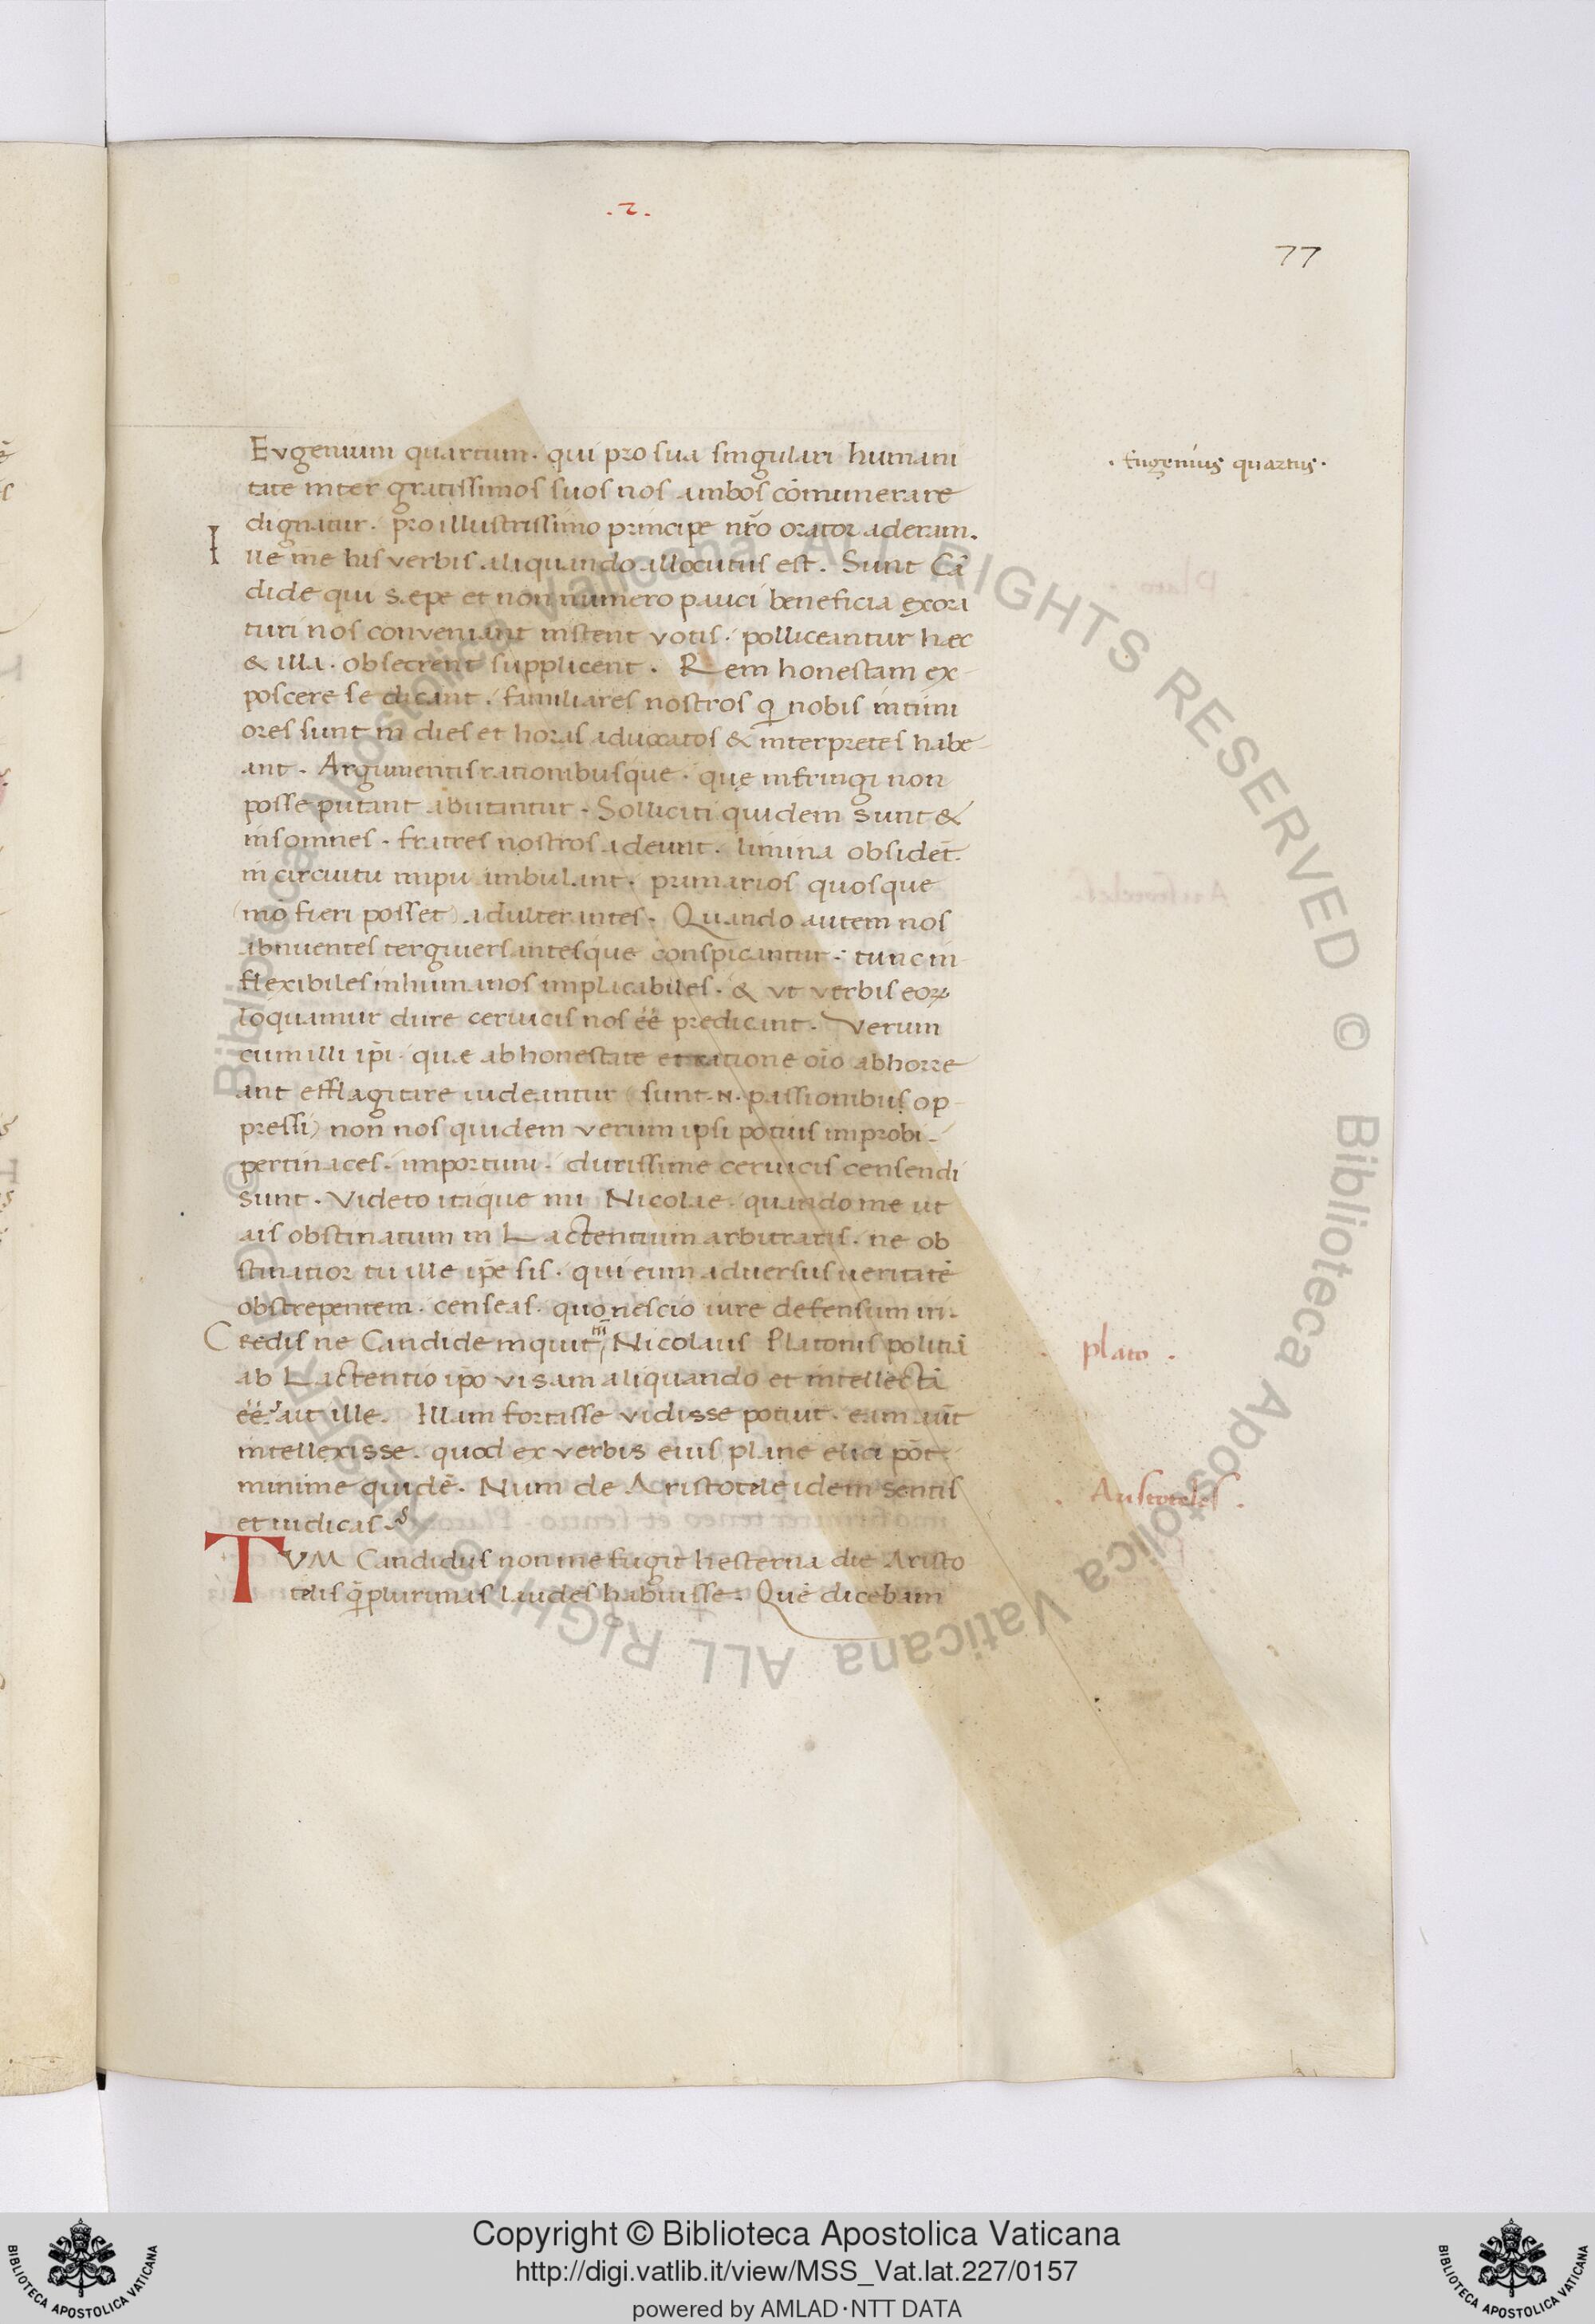 .2.
77
Eugenium quartum. qui pro sua singulari humani
. Eugenius quartus .
tate inter gratissimos suos nos ambos cōmunerare
dignatur. pro illustrissimo principe nr̄o orator aderam.
I
ue me his verbis aliquando allocutus est. Sunt Cā
dide qui sæpe et non numero pauci beneficia exora
turi nos conveniant instent votis. polliceantur hæc
& illa. obsecrent supplicent. Rem honestam ex-
poscere se dicant. familiares nostros q nobis intimi
ores sunt in dies et horas aduocatos & interpretes habe-
ant. Argumentis rationibusque. quę infringi non
posse putant abutantur. Solliciti quidem sunt &
insomnes. fratres nostros adeunt. limina obsidēt.
in circuitu impii ambulant. primarios quosque
(mō fieri posset) adulterantes. Quando autem nos
abnuentes tergiuersantesque conspicantur: tunc in-
flexibiles inhumanos implacabiles. & ut verbis eoꝝ
loquamur dure ceruicis nos ēē predicant. Verum
cum illi ip̄i. quæ ab honestate et ratione oīo abhorre
ant efflagitare uideantur (sunt .n. passionibus op-
pressi) non nos quidem verum ipsi potius improbi-
pertinaces. importuni. durissime ceruicis censendi
sunt. Videto itaque mi Nicolae. quando me ut
ais obstinatum in Lactentium arbitraris. ne ob
stinatior tu ille ip̄e sis. qui eum aduersus ueritatē
obstrepentem. censeas. quo nescio iure defensum iri.
Credis ne Candide inquit Nicolaus Platonis politiā
plato .
ab Lactentio ip̄o visam aliquando et intellectā
ēē? ait ille. Illam fortasse vidisse potuit. eam aūt
intellexisse. quod ex verbis eius plane elici pōt
minime quidē. Num de Aristotele idem sentis
. Aristoteles .
et iudicas?
TVM Candidus non me fugit hesterna die Aristo
telis q̄plurimas laudes habuisse. Quē dicebam
Copyright © Biblioteca Apostolica Vaticana
http://digi.vatlib.it/view/MSS_Vat.lat.227/0157
powered by AMLAD·NTT DATA